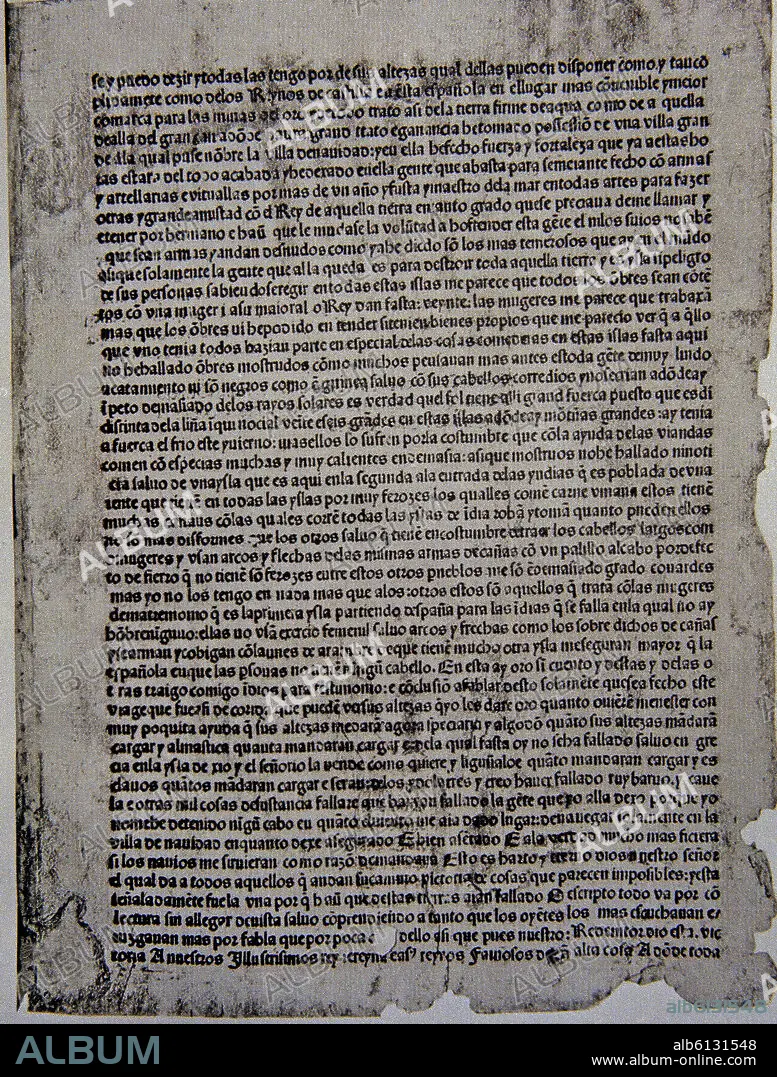 se y puedo dezir y todas las tengo por de sus altezas qual dellas pueden disponer como y tan cō
plidamēte como delos Reynos de castilla en esta española en ellugar mas cōuenible y meior
comarca para las minas del oro y de todo trato asi dela tierra firme de aqua como de a quella
de alla del gran can adōde haura grand trato e ganancia he tomado possessiō de vna villa gran
de ala qual puse nōbre la villa de nauidad: y en ella he fecho fuerza y fortaleza que ya a estas ho
ras estara del todo acabada y he dexado en ella gente que abasta para semeiante fecho cō armas
y artellarias e vituallas por mas de vn año y fusta y maestro dela mar en todas artes para fazer
otras y grande amistad cō el Rey de aquella tierra en tanto grado que se preciaua de me llamar y
e tener por hermano e haū que le mudase la volūtad a hoffender esta gēte el ni los suios no sabē
que sean armas y andan desnudos como ya he dicho sō los mas temerosos que ay en el mūdo
asi que solamente la gente que alla queda es para destroir toda aquella tierra y es ysla si peligro
de sus personas sabiendo se regir en todas estas islas me parece que todos los ōbres sean cōtē
tos cō vna muger i a su maioral o Rey dan fasta: veynte: las mugeres me parece que trabaxā
mas que los ōbres ni he podido entender si tenien bienes propios que me parecio ver q̄ a q̄llo
que vno tenia todos hazian parte en especial delas cosas comederas en estas islas fasta aqui
no he hallado ōbres mostrudos cōmo muchos pensauan mas antes es toda gēte de muy lindo
acatamiento ni sō negros como ē guinea saluo cō sus cabellos corredios y no se crian adōde ay
 īpeto demasiado delos rayos solares es verdad quel sol tiene alli grand fuerca puesto que es di
distinta dela liña īquinocial veite e seis grādes en estas islas adōde ay mōtañas grandes: ay tenia
a fuerca el frio este yuierno: mas ellos lo sufren por la costumbre que cō la ayuda delas viandas
comen cō especias muchas y muy calientes en demasia: asi que mostruos no he hallado ni noti
cia saluo de vna ysla que es aqui en la segunda ala entrada delas yndias q̄ es poblada de vna
iente que tienē en todas las yslas por muy ferozes los qualles comē carne vmana estos tienē
muchas canaus cō las quales corrē todas las yslas de īdia robā y tomā quanto pueden ellos
no sō mas disformes que los otros saluo q̄ tienē en costumbre de traer los cabellos largos com
o mugeres y vsan arcos y flechas delas misinas armas de cañas cō vn palillo al cabo por defec
to de fierro q̄ no tienē sō ferozes entre estos otros pueblos que sō ē demasiado grado couardes
mas yo no los tengo en nada mas que alos otros estos sō aquellos q̄ trata cō las mugeres
de matremomo q̄ es la primera ysla partiendo despaña para las īdias q̄ se falla en la qual no ay
hōbre niguno: ellas no vsā exercio femenil saluo arcos y frechas como los sobre dichos de cañas
y se arman y cobigan cō launes de arambre de que tienē mucho otra ysla me seguran mayor q̄ la
española en que las psonas no tienē nigū cabello. En esta ay oro sī cuento y destas y delas o
tras traigo comigo īdios para testimonio: e cōclusiō a fablar desto solamēte que sea fecho este
viage que fue asi de corrida que puedē ver sus altezas q̄ yo les dare oro quanto ouierē menester con
muy poquita ayuda q̄ sus altezas me darā agora specieria y algodō quāto sus altezas mādarā
cargar y almastica quanta mandaran cargar e dela qual fasta oy no se ha fallado saluo en gre
cia en la ysla de xio y el señorio la uende como quiere y liguñaloe quāto mandaran cargar y es
clauos quātos mādaran cargar e seran: delos ydolatres y creo hauer fallado ruybaruo. y cane
la e otras mil cosas de sustancia fallare que hauran fallado la gēte que yo alla dexo por que yo
no me he detenido nigū cabo en quāto el viento me aia dado lugar: de nauegar solamente en la
villa de nauidad en quanto dexe asegurado E bien asētado E ala verdad mucho mas ficiera
si los nauios me siruieran como razō demandaua Esto es harto y eterno dios nuestro señor
el qual da a todos aquellos q̄ andan su camino victoria de cosas que parecen imposibles: y esta
señaladamēte fue la vna por q̄ haū que destas tierras aian fallado O escripto todo va por cō
lectura sin allegar de uista saluo cōprendiendo a tanto que los oyētes los mas escuchauan e/
iuzgauan mas por fabla que por poca c dello asi que pues nuestro: Redemtor dio esta. vic
toria A nuestros Illustrisimos rey: e reyna easᵃ reynos Famosos de tā alta cosa A dōde toda